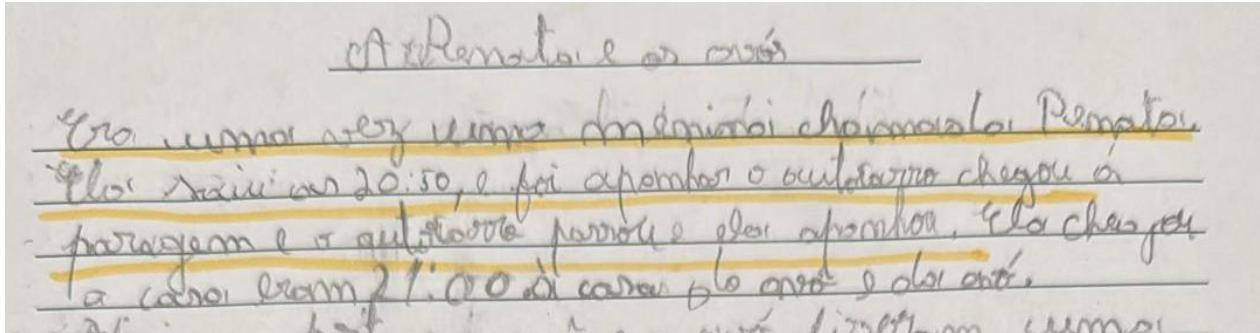 A Renata e os avós
Era uma vez uma menina chamada Renata.
Ela saiu as 20:50, e foi apanhar o autocarro chegou á
paragem e o autocarro parou e ela apanhou. Ela chegou
a casa eram 21:00 à casa do avô e da avó.
uma